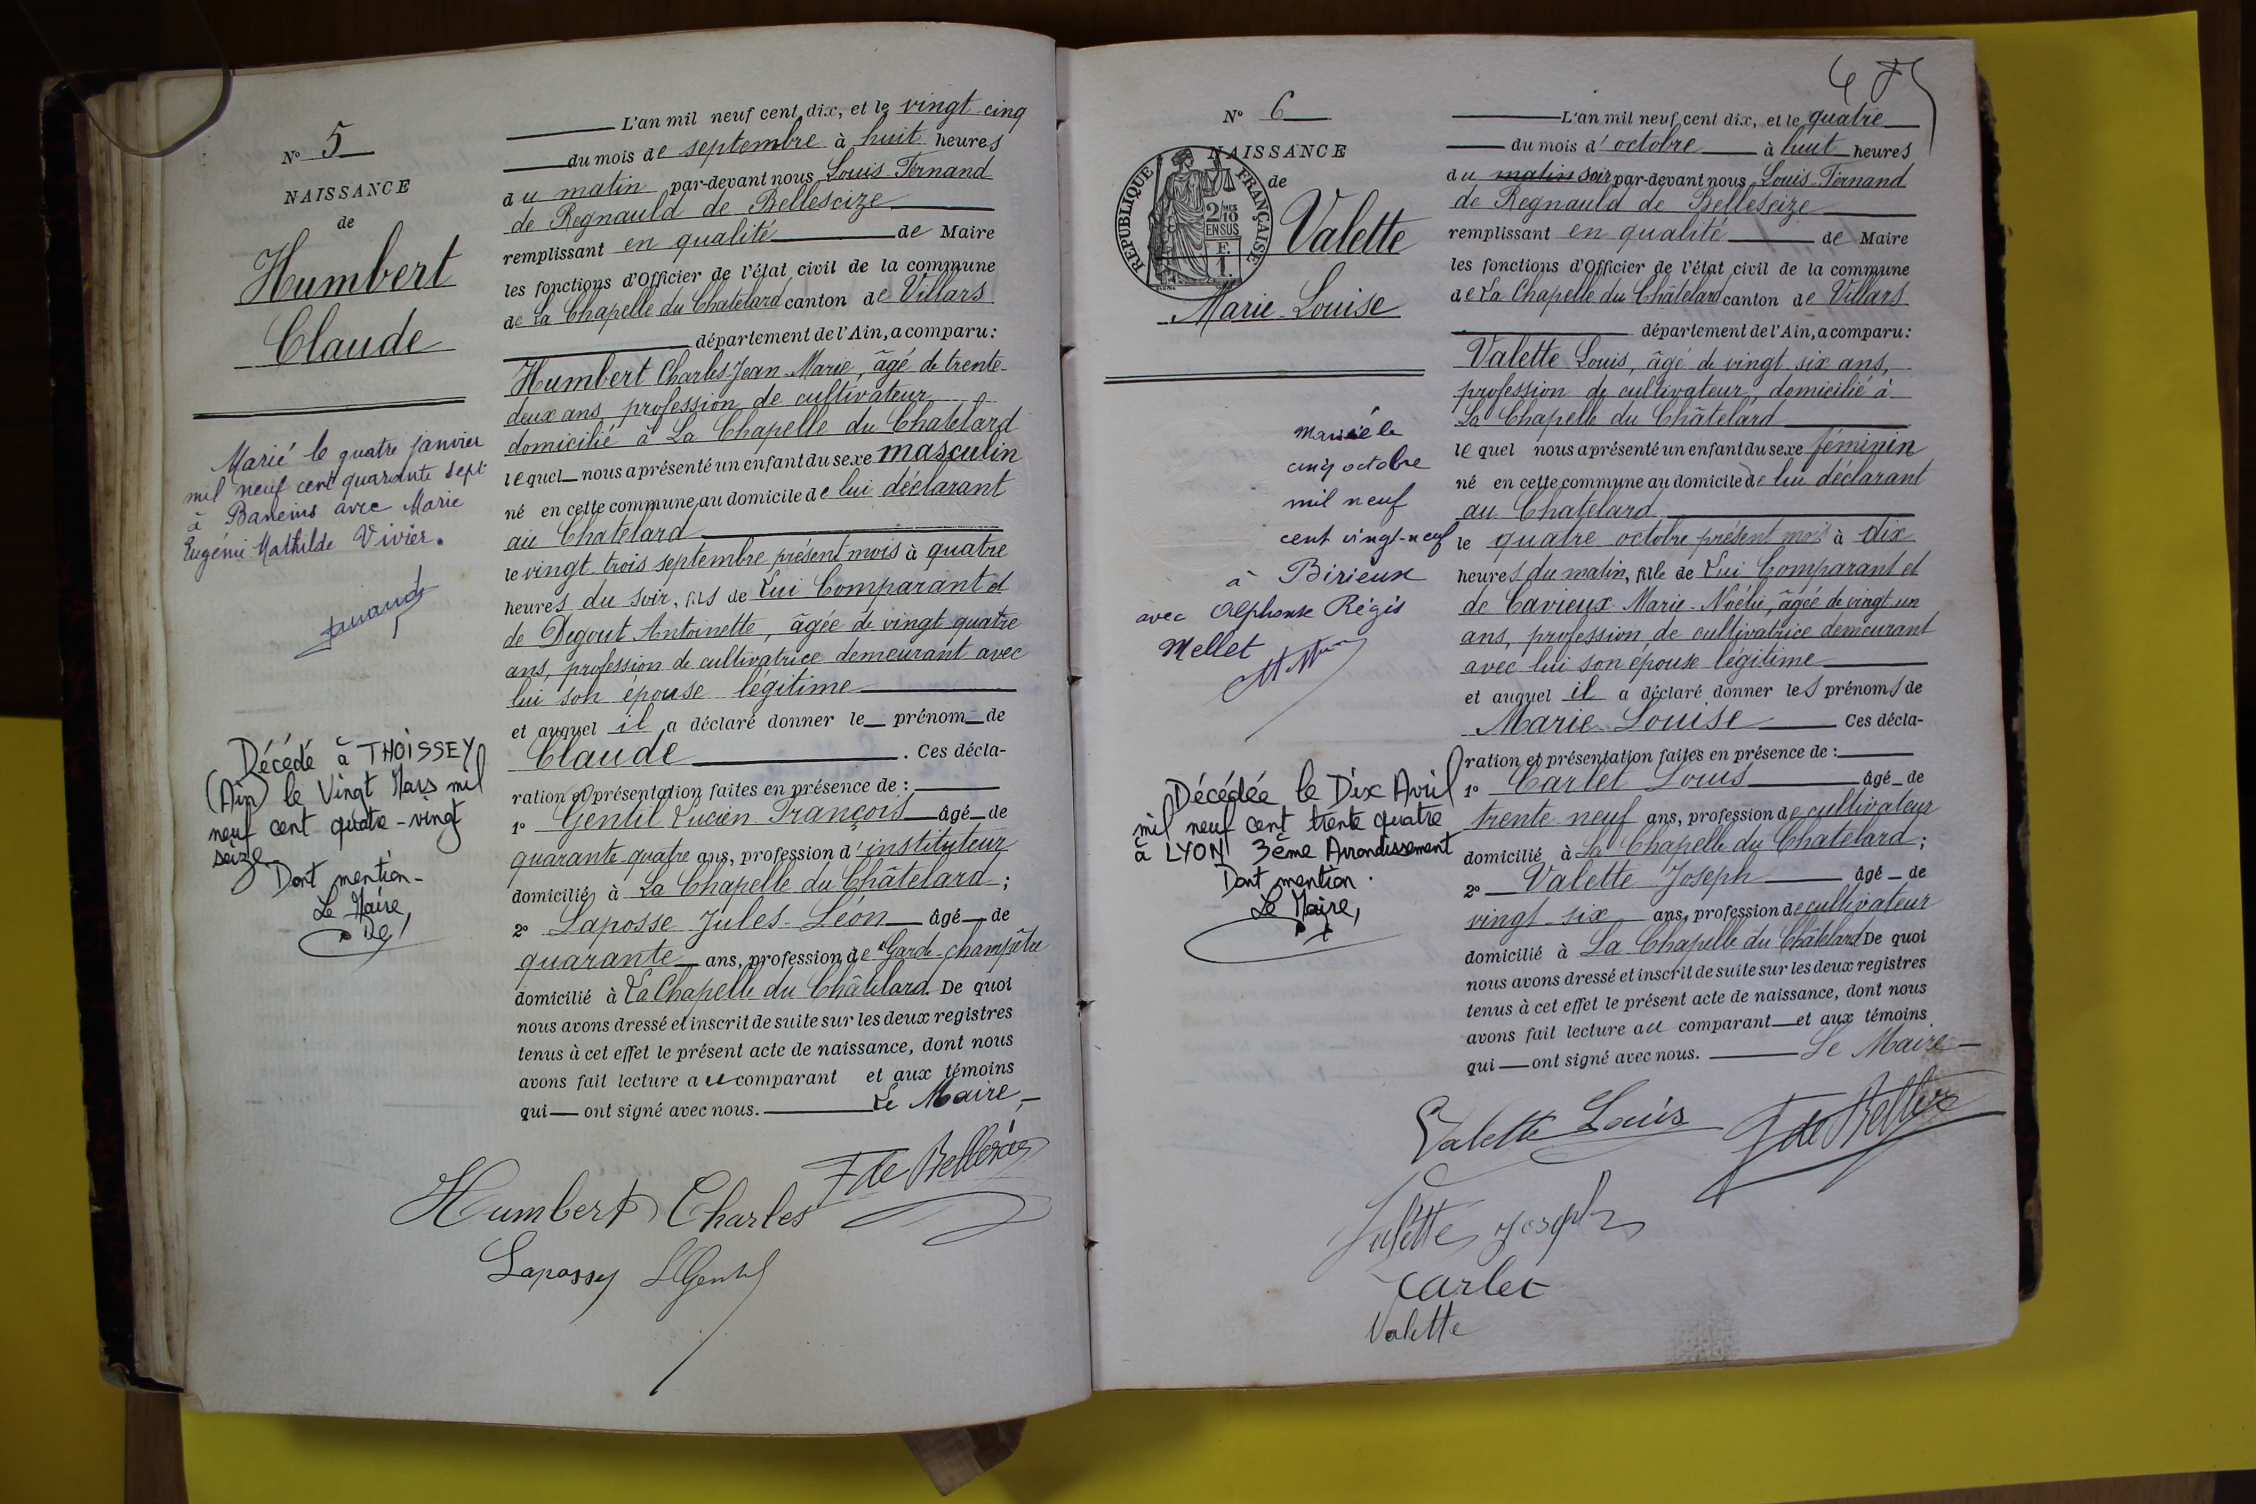 N° 5
NAISSANCE
de
Humbert
Claude
Marié le quatre janvier
mil neuf cent quarante sept
à Baneins avec Marie
Eugénie Mathilde Vivier.
Décédé à THOISSEY
(Ain) le Vingt Mars mil
neuf cent quatre-vingt
seize
Dont mention-
Le Maire,
L'an mil neuf cent dix, et le vingt cinq
du mois de septembre à huit heures
du matin par-devant nous Louis Fernand
de Regnauld de Bellescize
remplissant en qualité de Maire
les fonctions d'Officier de l'état civil de la commune
de La Chapelle du Chatelard canton de Villars
département de l'Ain, a comparu:
Humbert Charles Jean-Marie, âgé de trente-
deux ans, profession de cultivateur
domicilié à La Chapelle du Chatelard
lequel nous a présenté un enfant du sexe masculin
né en cette commune au domicile de lui déclarant
au Chatelard
le vingt trois septembre présent mois à quatre
heures du soir, fils de Lui Comparant et
de Degout Antoinette, âgée de vingt quatre
ans, profession de cultivatrice demeurant avec
lui son épouse légitime
et auquel il a déclaré donner le prénom de
Claude . Ces décla-
ration et présentation faites en présence de :
1° Gentil Lucien François âgé de
quarante quatre ans, profession d'instituteur
domicilié à La Chapelle du Châtelard ;
2° Laposse Jules-Léon âgé de
quarante ans, profession de Garde-champêtre
domicilié à La Chapelle du Châtelard. De quoi
nous avons dressé et inscrit de suite sur les deux registres
tenus à cet effet le présent acte de naissance, dont nous
avons fait lecture au comparant et aux témoins
qui ont signé avec nous. Le Maire,
F de Bellescize
Humbert Charles
Lapossey LGentil
N° 6
NAISSANCE
de
REPUBLIQUE FRANÇAISE
2/10 MES
EN SUS
F.
1.
Valette
Marie-Louise
Mariée le
cinq octobre
mil neuf
cent vingt-neuf
à Birieux
avec Alphonse Régis
Mellet
Décédée le Dix Avril
mil neuf cent trente quatre
à LYON 3ème Arrondissement
Dont mention.
Le Maire,
L'an mil neuf cent dix, et le quatre
du mois d'octobre à huit heures
du matin soir par-devant nous Louis Fernand
de Regnauld de Bellescize
remplissant en qualité de Maire
les fonctions d'Officier de l'état civil de la commune
de La Chapelle du Châtelard canton de Villars
département de l'Ain, a comparu:
Valette Louis, âgé de vingt six ans,
profession de cultivateur, domicilié à
La Chapelle du Châtelard
lequel nous a présenté un enfant du sexe féminin
né en cette commune au domicile de lui déclarant
au Chatelard
le quatre octobre présent mois à dix
heures du matin, fille de Lui Comparant et
de Cavieux Marie-Noélie, âgée de vingt un
ans, profession de cultivatrice demeurant
avec lui son épouse légitime
et auquel il a déclaré donner les prénoms de
Marie Louise Ces décla-
ration et présentation faites en présence de :
1° Carlet Louis âgé de
trente neuf ans, profession de cultivateur
domicilié à La Chapelle du Chatelard ;
2° Valette Joseph âgé de
vingt six ans, profession de cultivateur
domicilié à La Chapelle du Châtelard De quoi
nous avons dressé et inscrit de suite sur les deux registres
tenus à cet effet le présent acte de naissance, dont nous
avons fait lecture au comparant et aux témoins
qui ont signé avec nous. Le Maire
Valette Louis
F de Bellescize
Valette Joseph
Carlet
Valette